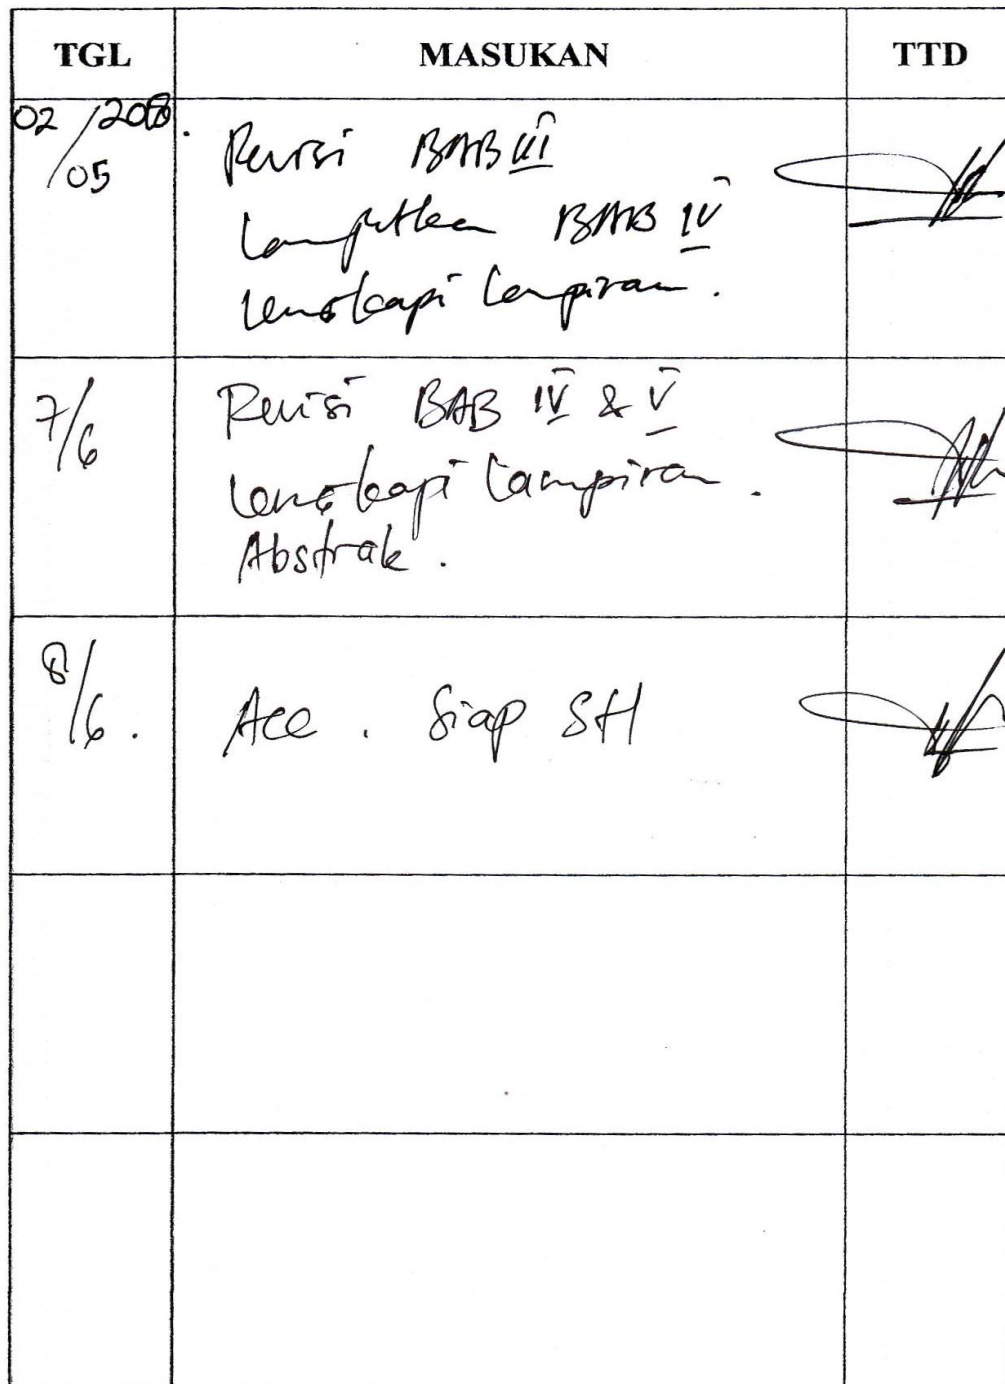 TGL MASUKAN TTD
02/05 2018.
Revisi BAB III
Lanjutkan BAB IV
Lengkapi Lampiran.
7/6
Revisi BAB IV & V
Lengkapi Lampiran.
Abstrak.
8/6.
Acc. Siap SH